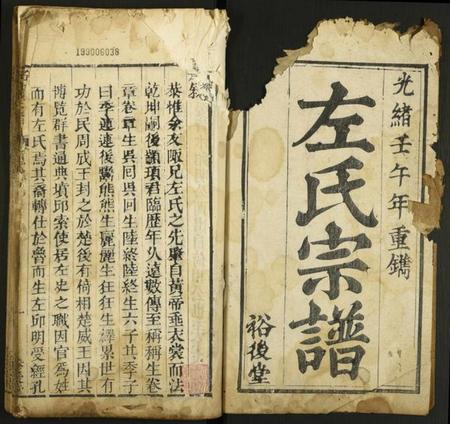 光緒壬午年重鐫
左氏宗譜
裕後堂
199006038
敘
恭惟余友陬兄左氏之先肇自黃帝垂衣裳而法
乾坤嗣後顓頊君臨歷年久遠數傳至稱稱生卷
章卷章生吳回吳回生陸終陸終生六子其季子
曰季連連後鬻熊熊生麗麗生狂狂生繹累世有
功於民周成王封之於楚後有倚相楚威王因其
博覧群書通典墳邱索使居左史之職因官為姓
而有左氏焉其裔轉仕於魯而生左邱明受經孔